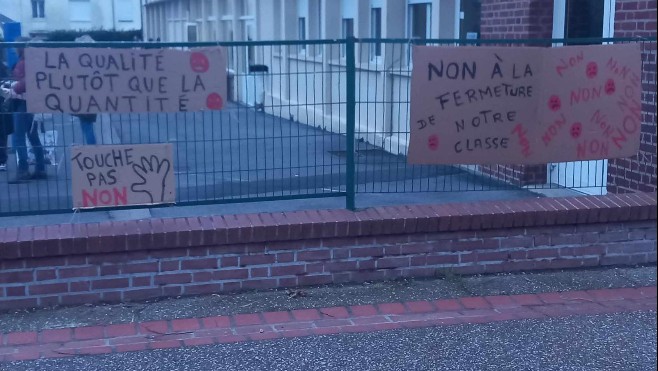 LA QUALITÉ
PLUTÔT QUE LA
QUANTITÉ
TOUCHE
PAS
NON
NON À LA
FERMETURE
DE NOTRE
CLASSE
NON
NON
NON
NON
NON
NON
NON
NON